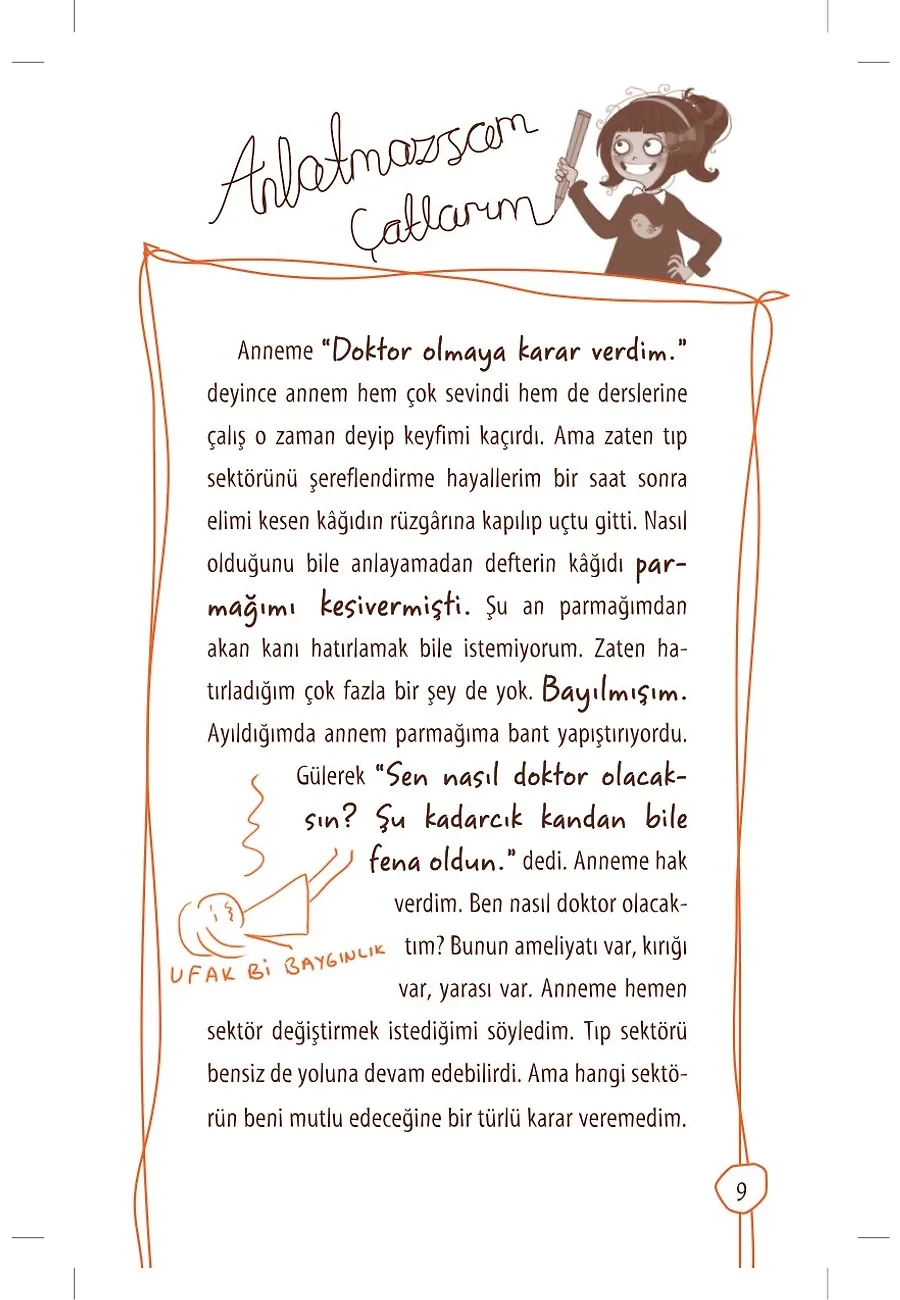 Anlatmazsam
Çatlarım
Anneme “Doktor olmaya karar verdim.”
deyince annem hem çok sevindi hem de derslerine
çalış o zaman deyip keyfimi kaçırdı. Ama zaten tıp
sektörünü şereflendirme hayallerim bir saat sonra
elimi kesen kâğıdın rüzgârına kapılıp uçtu gitti. Nasıl
olduğunu bile anlayamadan defterin kâğıdı par-
mağımı kesivermişti. Şu an parmağımdan
akan kanı hatırlamak bile istemiyorum. Zaten ha-
tırladığım çok fazla bir şey de yok. Bayılmışım.
Ayıldığımda annem parmağıma bant yapıştırıyordu.
Gülerek “Sen nasıl doktor olacak-
sın? Şu kadarcık kandan bile
fena oldun.” dedi. Anneme hak
verdim. Ben nasıl doktor olacak-
tım? Bunun ameliyatı var, kırığı
var, yarası var. Anneme hemen
sektör değiştirmek istediğimi söyledim. Tıp sektörü
bensiz de yoluna devam edebilirdi. Ama hangi sektö-
rün beni mutlu edeceğine bir türlü karar veremedim.
UFAK Bİ BAYGINLIK
9